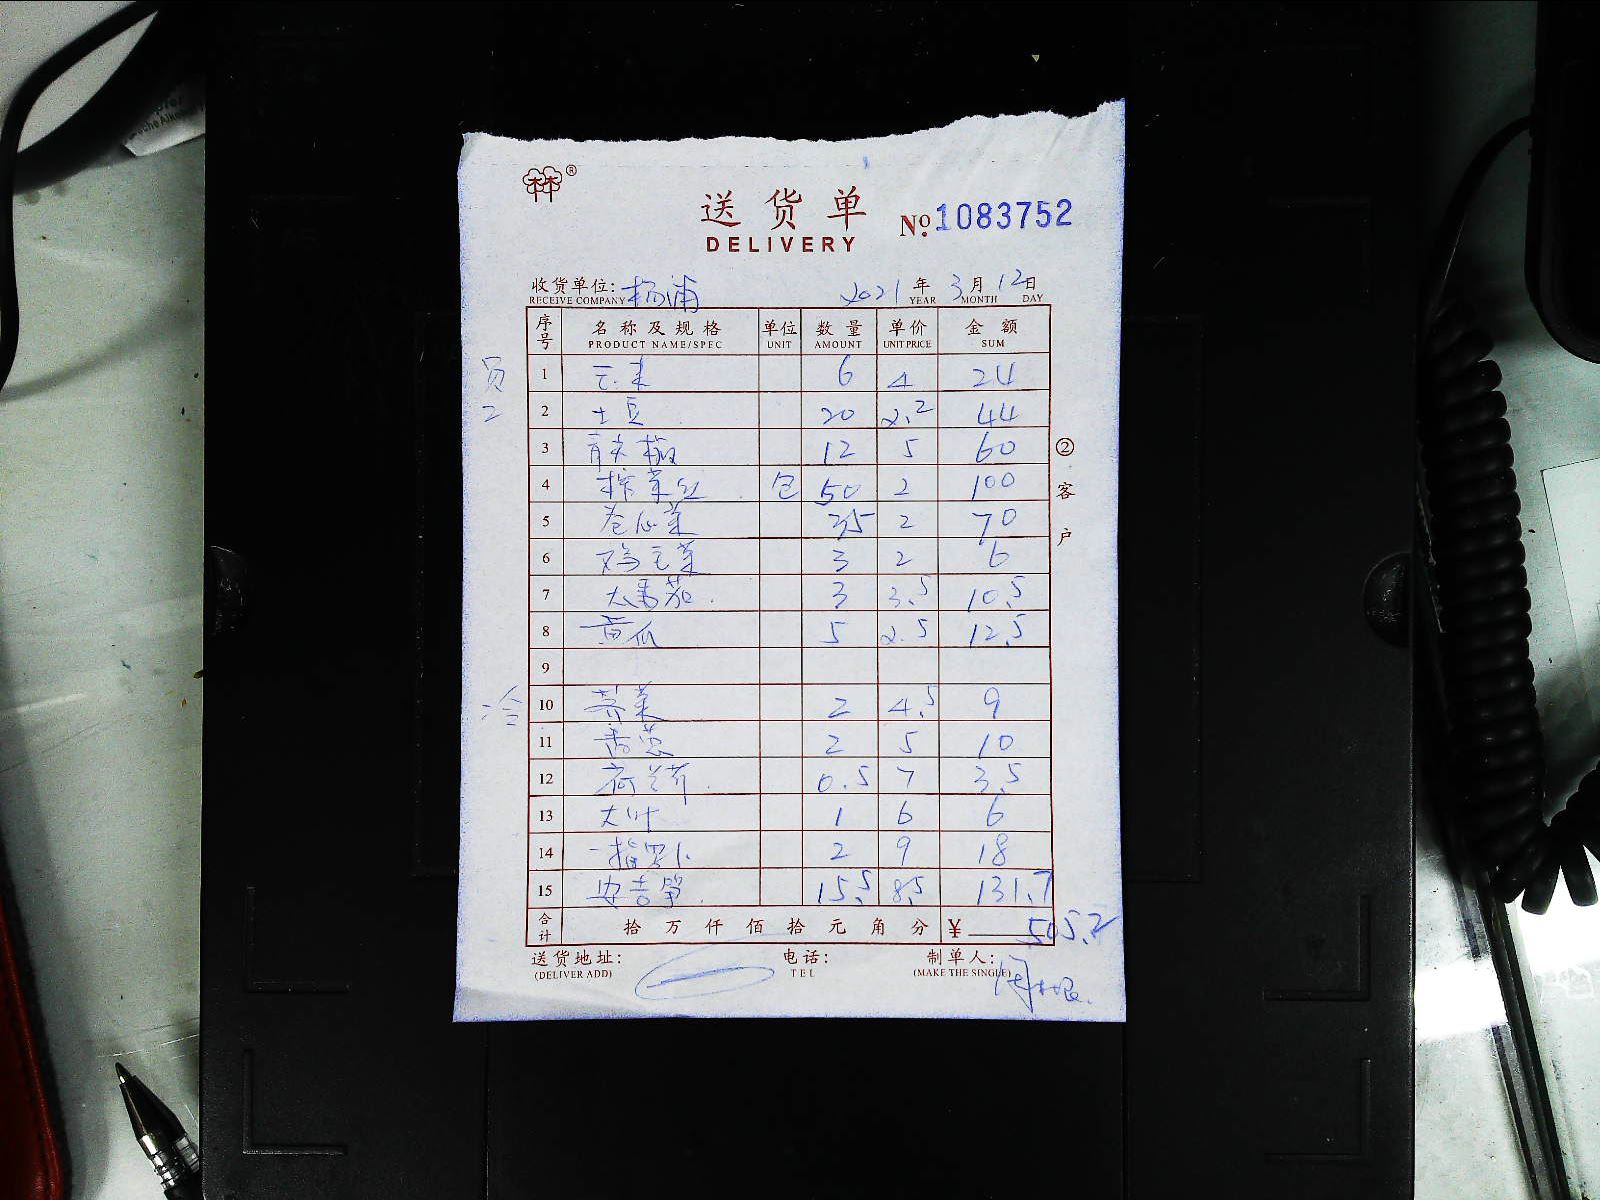 送货单
DELIVERY
№ 1083752
收货单位: 杨浦 2021年 3月 12日
RECEIVE COMPANY YEAR MONTH DAY
序号 名称及规格 单位 数量 单价 金额
PRODUCT NAME/SPEC UNIT AMOUNT UNIT PRICE SUM
员工
1 6 4 24
2 土豆 20 2.2 44
3 青尖椒 12 5 60
4 榨菜丝 包 50 2 100
5 卷心菜 35 2 70
6 鸡毛菜 3 2 6
7 大番茄 3 3.5 10.5
8 黄瓜 5 2.5 12.5
9
冷
10 荠菜 2 4.5 9
11 香葱 2 5 10
12 荷兰芹 0.5 7 3.5
13 大叶 1 6 6
14 一指罗卜 2 9 18
15 安吉笋 15.5 8.5 131.7
合计 拾 万 仟 佰 拾 元 角 分 ¥ 505.2
送货地址: 电话: 制单人:
(DELIVER ADD) TEL (MAKE THE SINGLE)
②客户